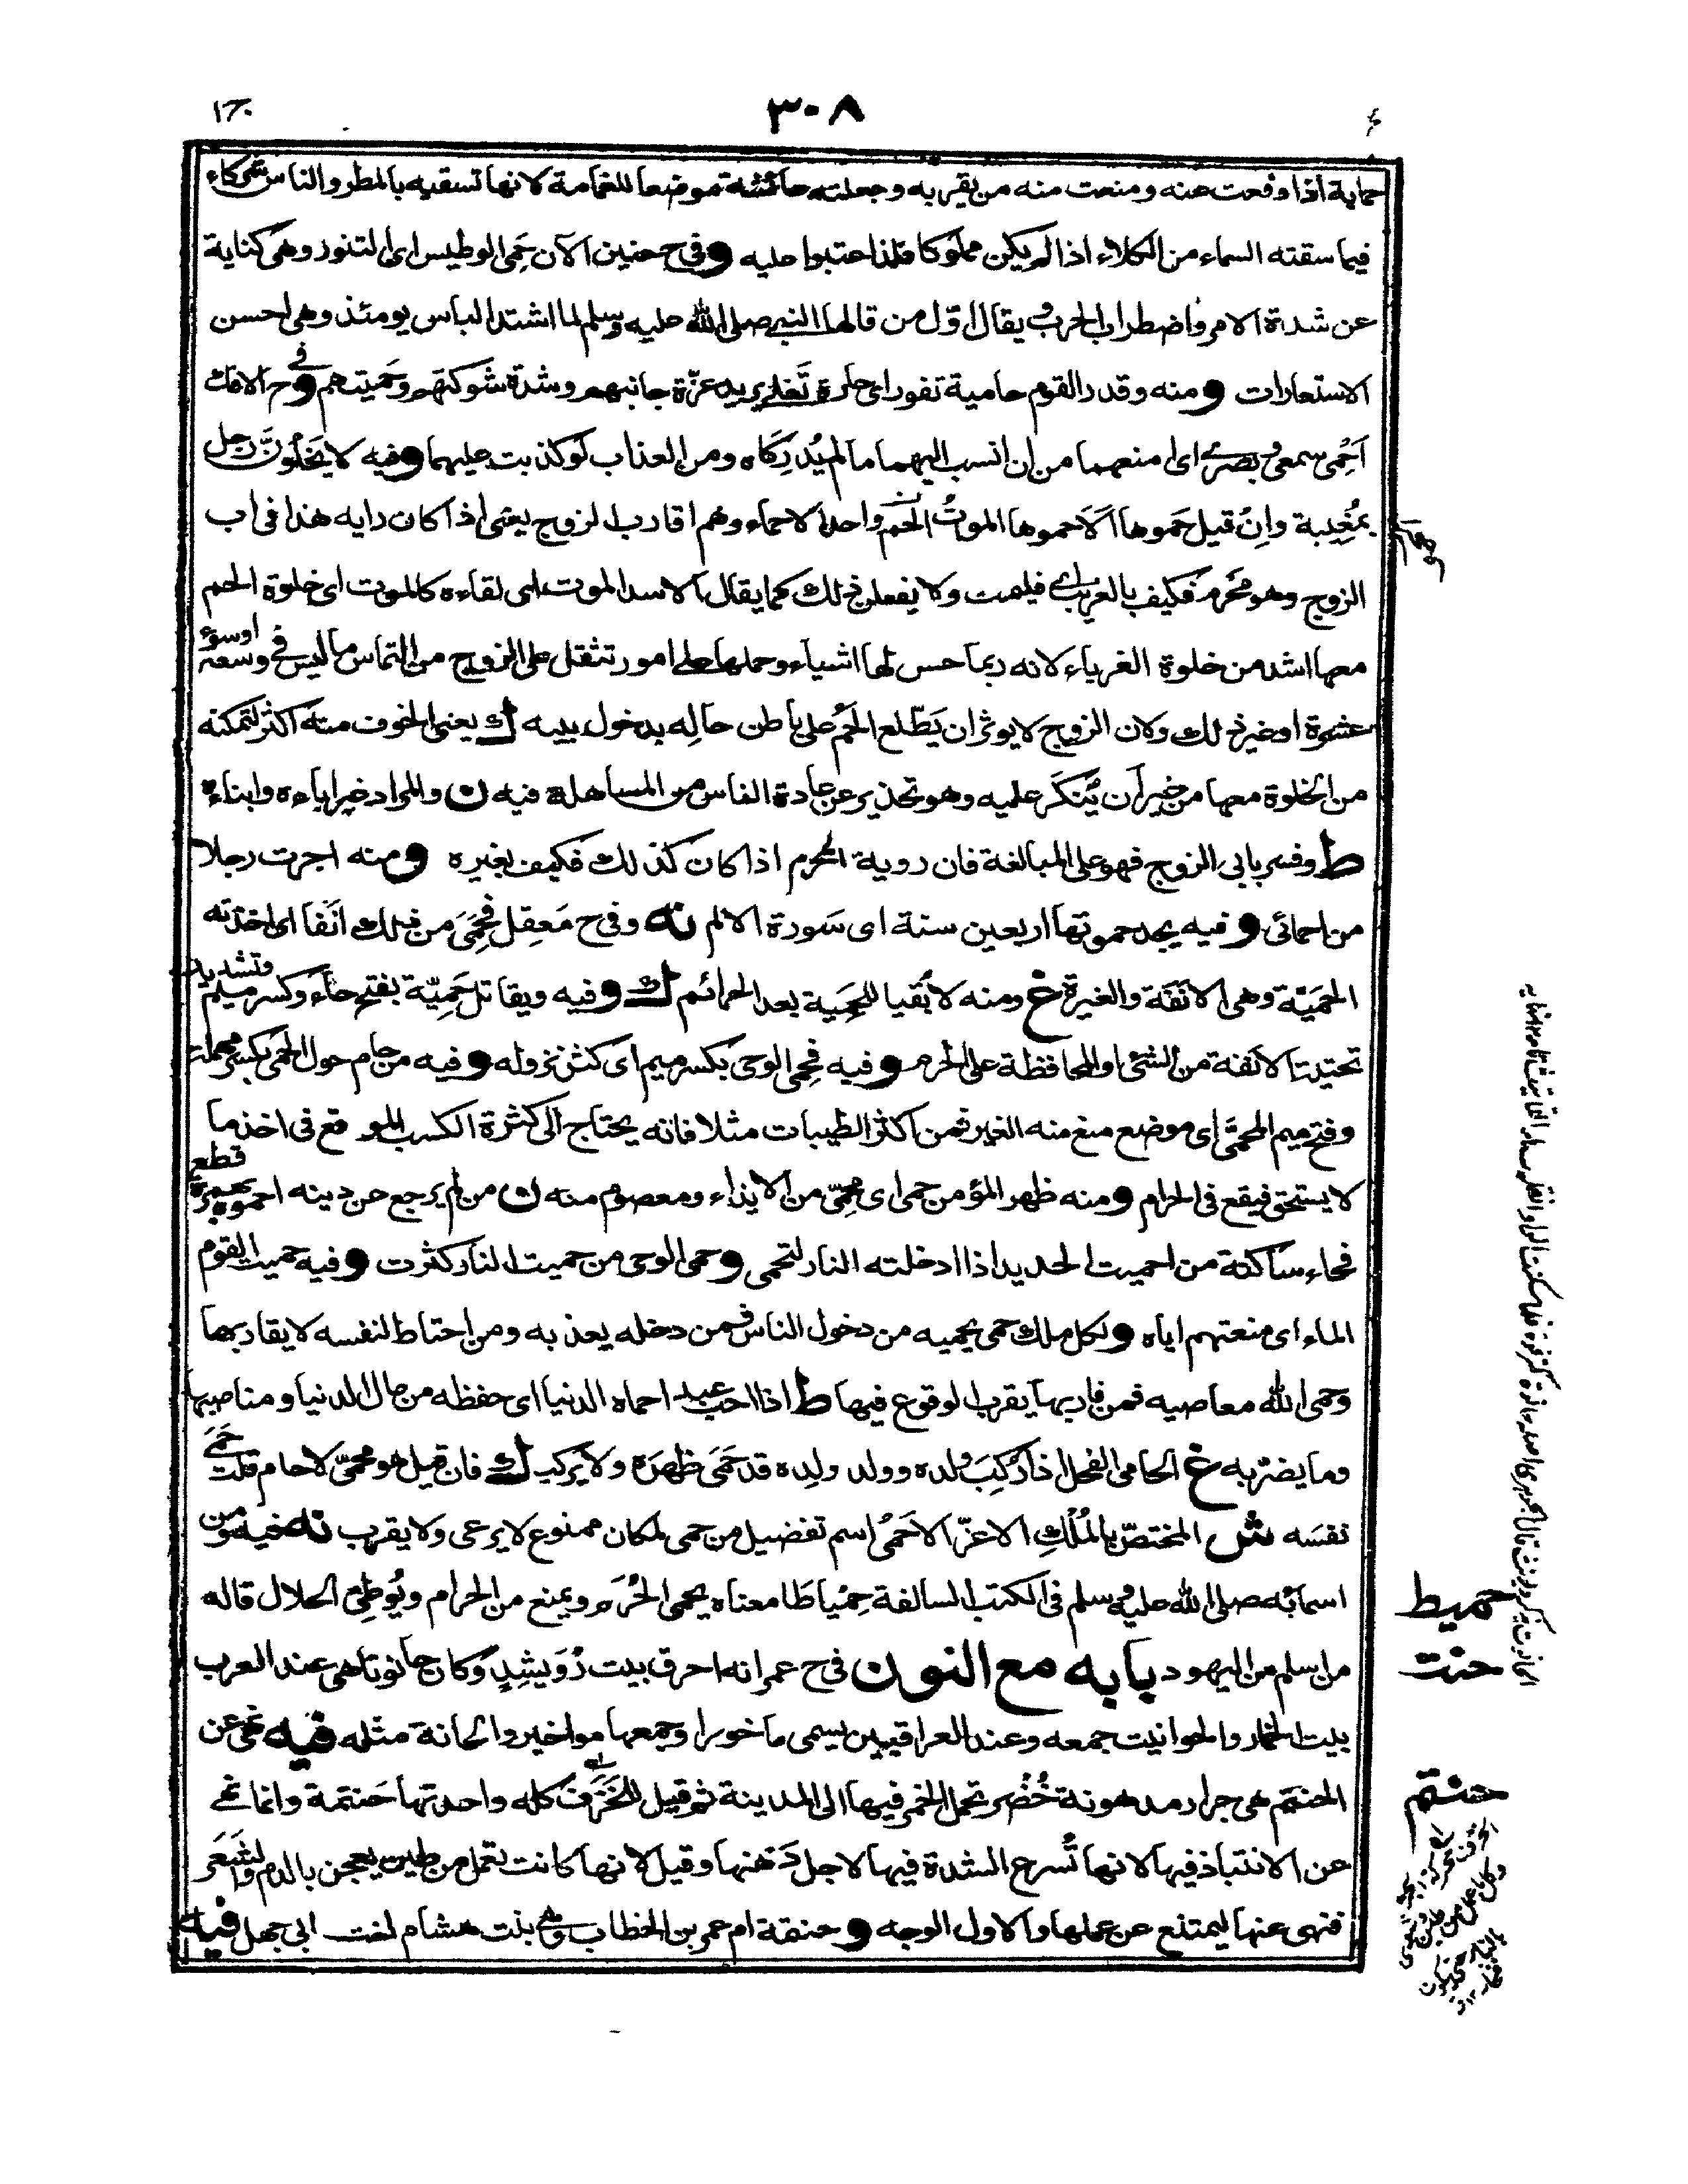 ٣٠٨
حماية اذا دفعت عنه ومنعت منه من يقربه وجعلته عائشة موضعا للغمامة لانها تسقيه بالمطر والناس شركاء
فيما سقته السماء من الكلاء اذا لم يكن مملوكا فلذا عتبوا عليه وفى ح حنين الآن حَمِى الوطيس اى التنور وهى كناية
عن شدة الامر واضطراب الحرب ويقال اوّل من قالها النبى صلى الله عليه وسلم لما اشتد الباس يومئذ وهى احسن
الاستعارات ومنه وقدر القوم حامية تفور اى حارة تَغلى يريد عزّة جانبهم وشدة شوكتهم وحَميتهم وفى ح الافك
اَحْمِى سمعى وبصرى اى امنعهما من ان انسب اليهما ما لم يُدرِكاه ومن العذاب لو كذبت عليهما وفيه لا يَخلُونَّ رجل
بمُغِيبة واِنْ قيل حَموها اَلَا حموها الموتُ الحم واحد الاحماء وهم اقارب الزوج يعنى اذا كان رايه هذا فى اب
الزوج وهو مَحْرم فكيف بالغريب اى فليمت ولا يفعلن ذلك كما يقال الاسد الموت اى لقاءه كالموت اى خلوة الحم
معها اشد من خلوة الغرباء لانه ربما حسن لها اشياء وحملها على امور تثقل على الزوج من التماس ما ليس فى وسعه او سوء
عشرة او غير ذلك ولان الزوج لا يوثر ان يَطّلع الحَمُ على باطن حالِه بدخول بيته ك يعنى الخوف منه اكثر لتمكنه
من الخلوة معها من غير ان يُنكَر عليه وهو تحذير عن عادة الناس من المساهلة فيه ن والمراد غير اباءه وابناءه
ط وفسر بابى الزوج فهو على المبالغة فان روية المحرم اذا كان كذلك فكيف بغيره ومنه اجرت رجلا
من احمائى وفيه يجد حموتها اربعين سنة اى سَورة الالم نه وفى ح مَعقِل فحَمِىَ من ذلك انَفا اى اخذته
الحَميّة وهى الانَفَة والغيرة غ ومنه لا بُقيا للحَمِية بعد الحرائم ك وفيه ويقاتل حَمِيّة بفتح حاء وكسر ميم وتشديد
تحتية الانفة من الشئ او المحافظة على الحرم وفيه فحَمِى الوحى بكسر ميم اى كثر نزوله وفيه من حام حول الحمى بكسر مهملة
وفتح ميم المحمىّ اى موضع منع منه الغير فمن اكثر الطيبات مثلا فانه يحتاج الى كثرة الكسب الموقع فى اخذ ما
لا يستحق فيقع فى الحرام ومنه ظهر المؤمن حمى اى مَحمِىّ من الايذاء ومعصوم منه ن من لم يرجع عن دينه احموه بهمزة قطع
فحاء ساكنة من احميت الحديد اذا ادخلته النار لتحمى وحمى الوحى من حميت النار كثرت وفيه حميت القوم
الماء اى منعتهم اياه ولكل ملك حمى يحميه من دخول الناس فمن دخله يعذبه ومن احتاط لنفسه لا يقاربها
وحمى الله معاصيه فمن قاربها يقرب الوقوع فيها ط اذا احب عبدا حماه الدنيا اى حفظه من مال الدنيا ومناصبها
وما يضرّ به غ الحامى الفحل اذا رُكِبَ ولده وولد ولِده قد حَمَى ظهرَه ولا يركب ك فان قيل هو محمىّ لا حام قلت حَمَى
نفسَه ش المختصّ بالمُلكِ الاعزّ الاحَمى اسم تفضيل من حمى لمكان ممنوع لا يرعى ولا يقرب نه فيه ومن
اسمائه صلى الله عليه وسلم فى الكتب السالفة حِمْياطَا معناه يحمى الحُرَم ويمنع من الحرام ويُوطِئ الحلال قاله
من اسلم من اليهود بابه مع النون فى ح عمر انه احرق بيت رُوَيشِدٍ وكان حانوتا هى عند العرب
بيت الخمار والحوانيت جمعه وعند العراقيين يسمى ماخورا وجمعها مواخير والحانة مثله فيه نهى عن
الحنتم هى جرار مدهونة خُضْر تحمل الخمر فيها الى المدينة ثم قيل للخَزَف كله واحدتها حَنتمة وانما نهى
عن الانتباذ فيها لانها تُسرع الشدة فيها لاجل دَهنها وقيل لانها كانت تعمل من طين يعجن بالدم والشَعَر
فنهى عنها ليمتنع عن عملها والاول الوجه وحنتمة ام عمر بن الخطاب وهى بنت هشام اخت ابى جهل فيه
حميط
حنت
حنتم